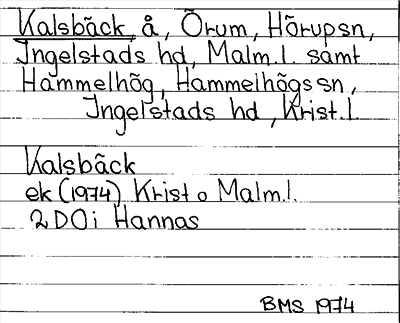 Kalsbäck, å, Örum, Hörupsn,
Ingelstads hd, Malm.l. samt
Hammelhög, Hammelhögssn,
Ingelstads hd, Krist.l.
Kalsbäck
ek (1974) Krist o Malm.l.
2 DO i Hannas
BMS 1974